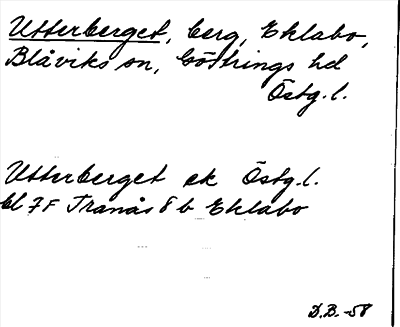 Utterberget, berg, Eklabo,
Blåviks sn, Göstrings hd
Östg. l.
Utterberget ek Östg. l.
bl 7F Tranås 8 b Eklabo
D.B. -58